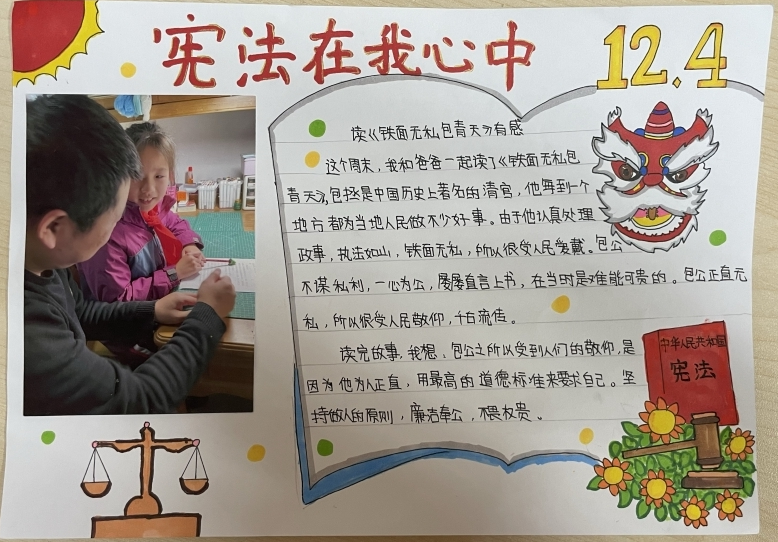 宪法在我心中
12.4
读《铁面无私包青天》有感
这个周末，我和爸爸一起读了《铁面无私包
青天》，包拯是中国历史上著名的清官，他每到一个
地方都为当地人民做不少好事。由于他认真处理
政事，执法如山，铁面无私，所以很受人民爱戴。包公
不谋私利，一心为公，屡屡直言上书，在当时是难能可贵的。包公正直无
私，所以很受人民敬仰，千古流传。
读完故事，我想，包公之所以受到人们的敬仰，是
因为他为人正直，用最高的道德标准来要求自己。坚
持做人的原则，廉洁奉公，不畏权贵。
中华人民共和国
宪法